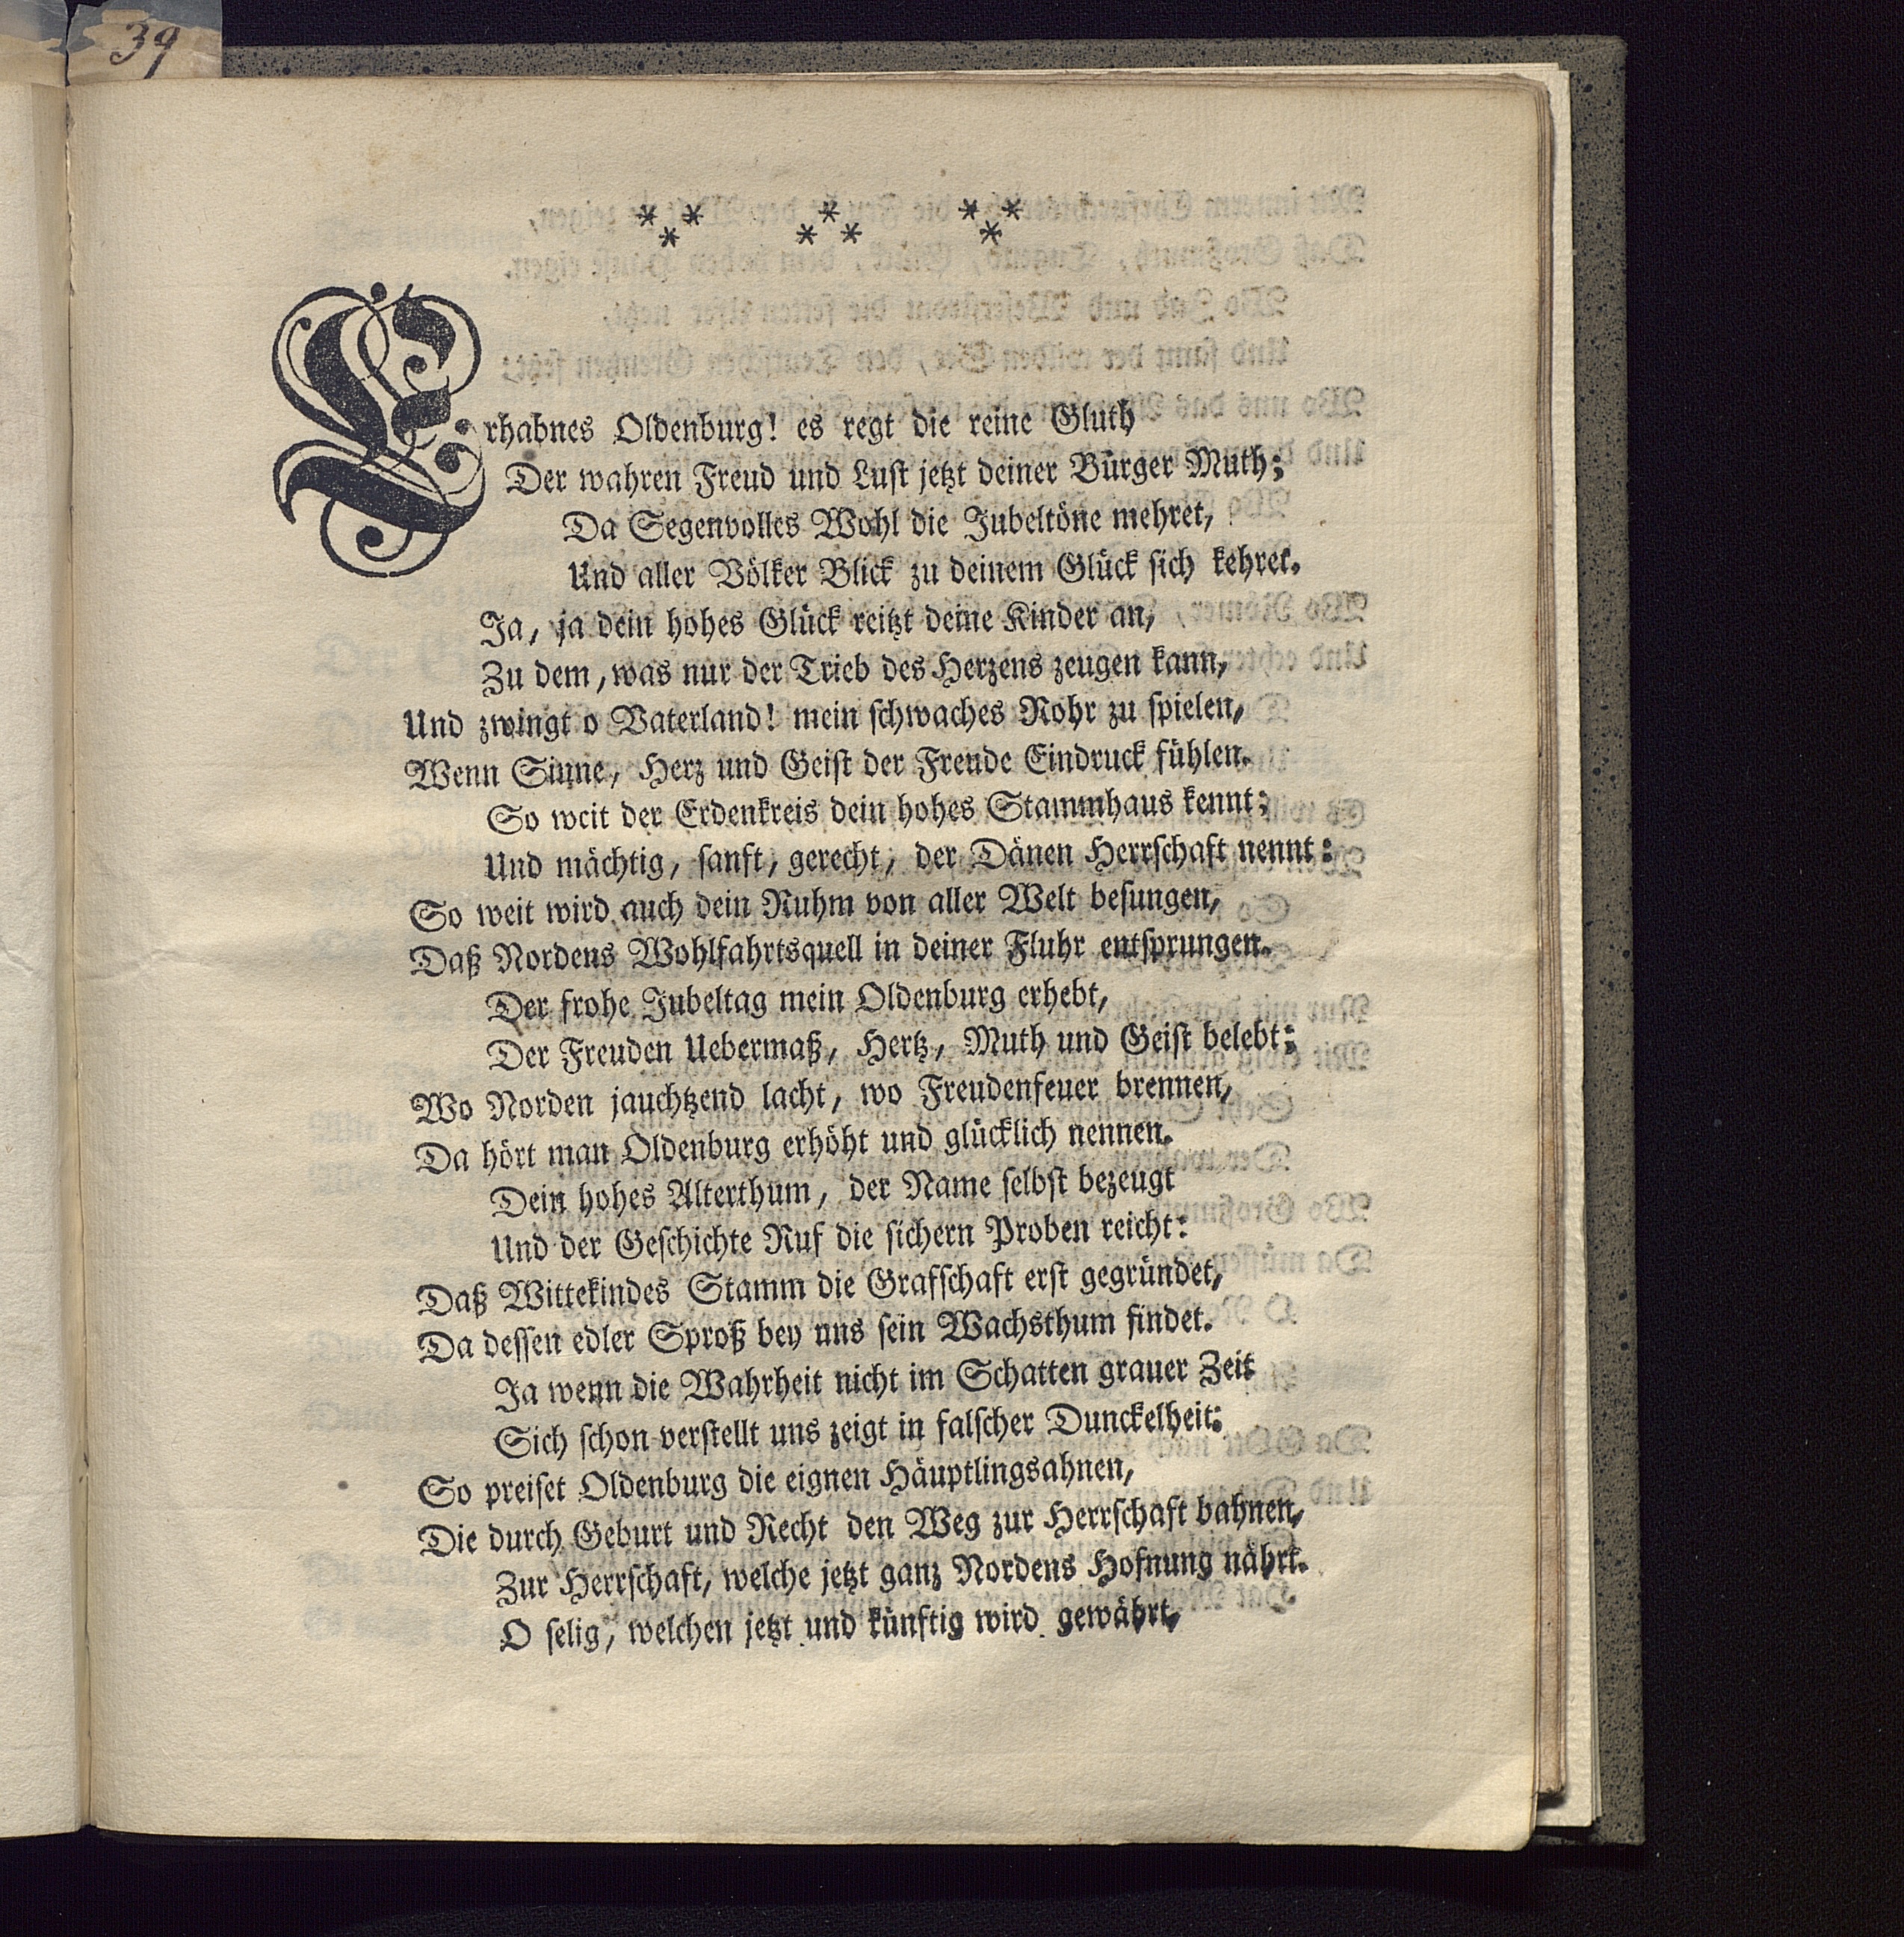 39
* * * * * * * * *
Erhabnes Oldenburg! es regt die reine Gluth
Der wahren Freud und Lust jetzt deiner Bürger Muth;
Da Segenvolles Wohl die Jubeltöne mehret,
Und aller Völker Blick zu deinem Glück sich kehret.
Ja, ja dein hohes Glück reitzt deine Kinder an,
Zu dem, was nur der Trieb des Herzens zeugen kann,
Und zwingt o Vaterland! mein schwaches Rohr zu spielen,
Wenn Sinne, Herz und Geist der Freude Eindruck fühlen.
So weit der Erdenkreis dein hohes Stammhaus kennt;
Und mächtig, sanft, gerecht, der Dänen Herrschaft nennt:
So weit wird auch dein Ruhm von aller Welt besungen,
Daß Nordens Wohlfahrtsquell in deiner Fluhr entsprungen.
Der frohe Jubeltag mein Oldenburg erhebt,
Der Freuden Uebermaß, Hertz, Muth und Geist belebt;
Wo Norden jauchtzend lacht, wo Freudenfeuer brennen,
Da hört man Oldenburg erhöht und glücklich nennen.
Dein hohes Alterthum, der Name selbst bezeugt
Und der Geschichte Ruf die sichern Proben reicht:
Daß Wittekindes Stamm die Grafschaft erst gegründet,
Da dessen edler Sproß bey uns sein Wachsthum findet.
Ja wenn die Wahrheit nicht im Schatten grauer Zeit
Sich schon verstellt uns zeigt in falscher Dunckelheit:
So preiset Oldenburg die eignen Häuptlingsahnen,
Die durch Geburt und Recht den Weg zur Herrschaft bahnen,
Zur Herrschaft, welche jetzt ganz Nordens Hofnung nährt.
O selig, welchen jetzt und künftig wird gewährt,